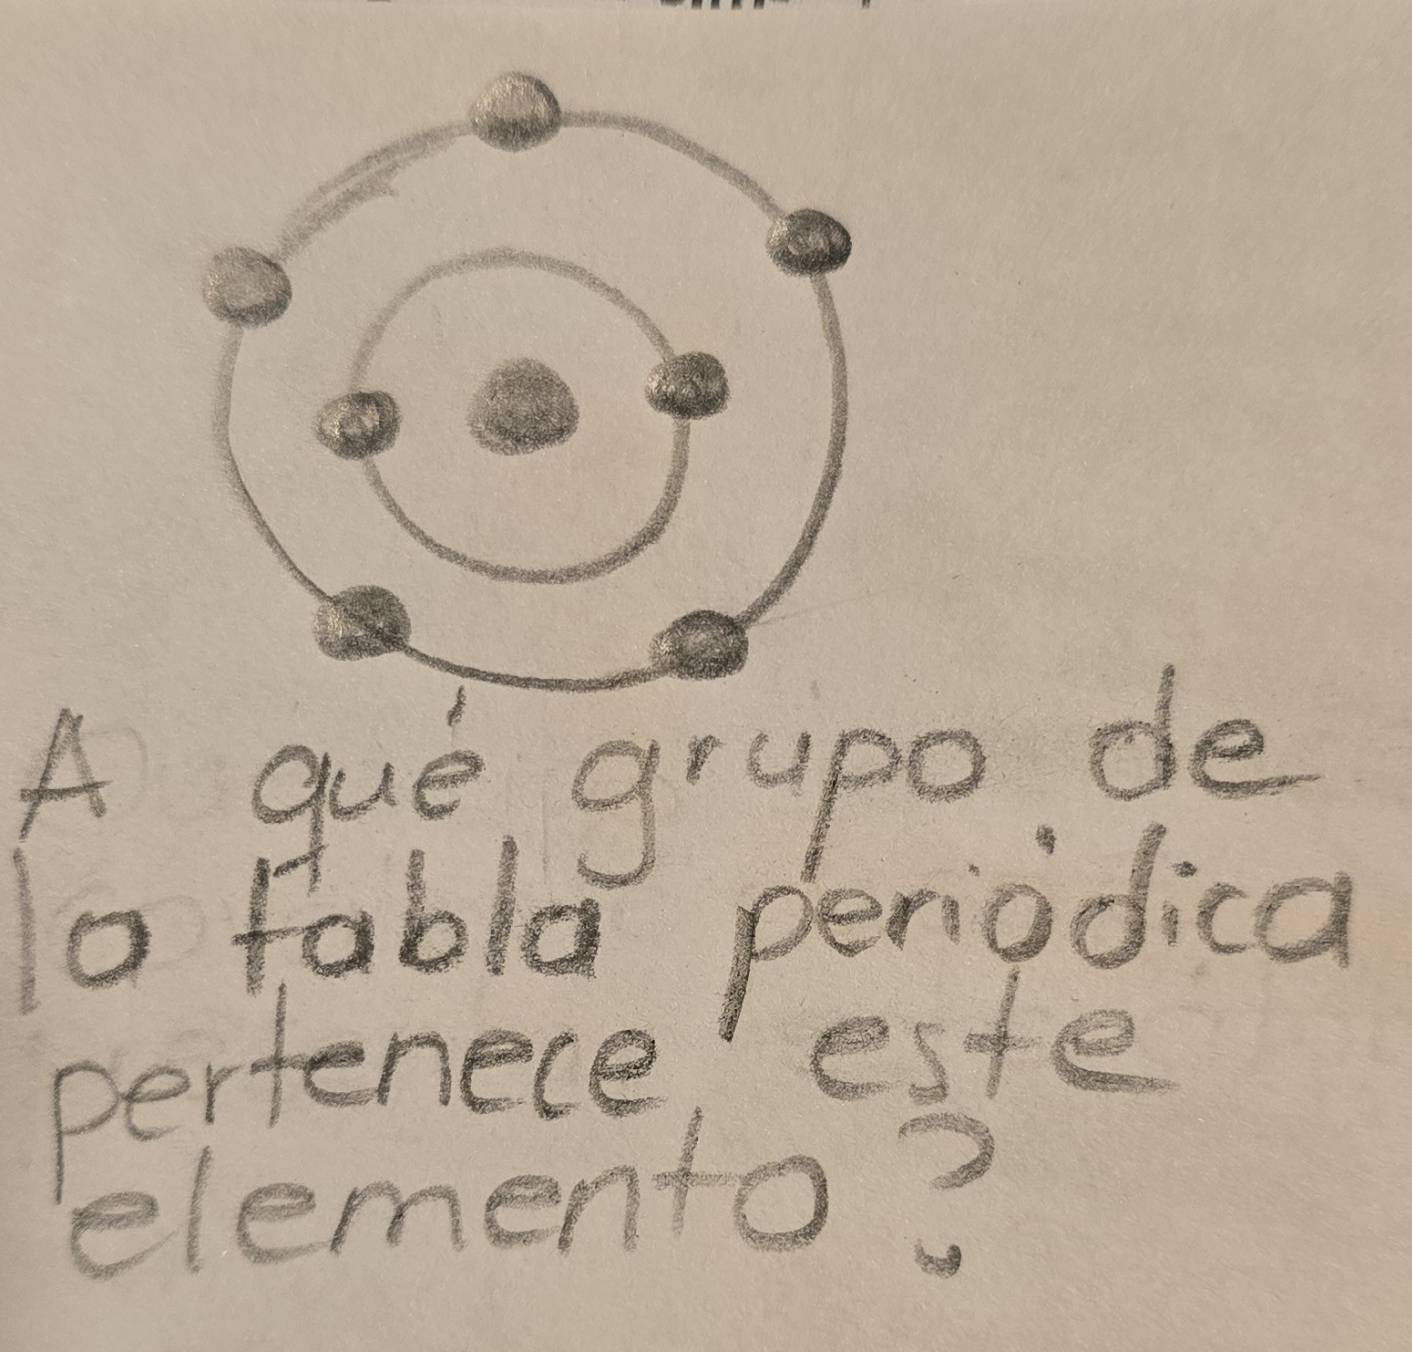 A qué grupo de
la tabla periódica
pertenece este
elemento?